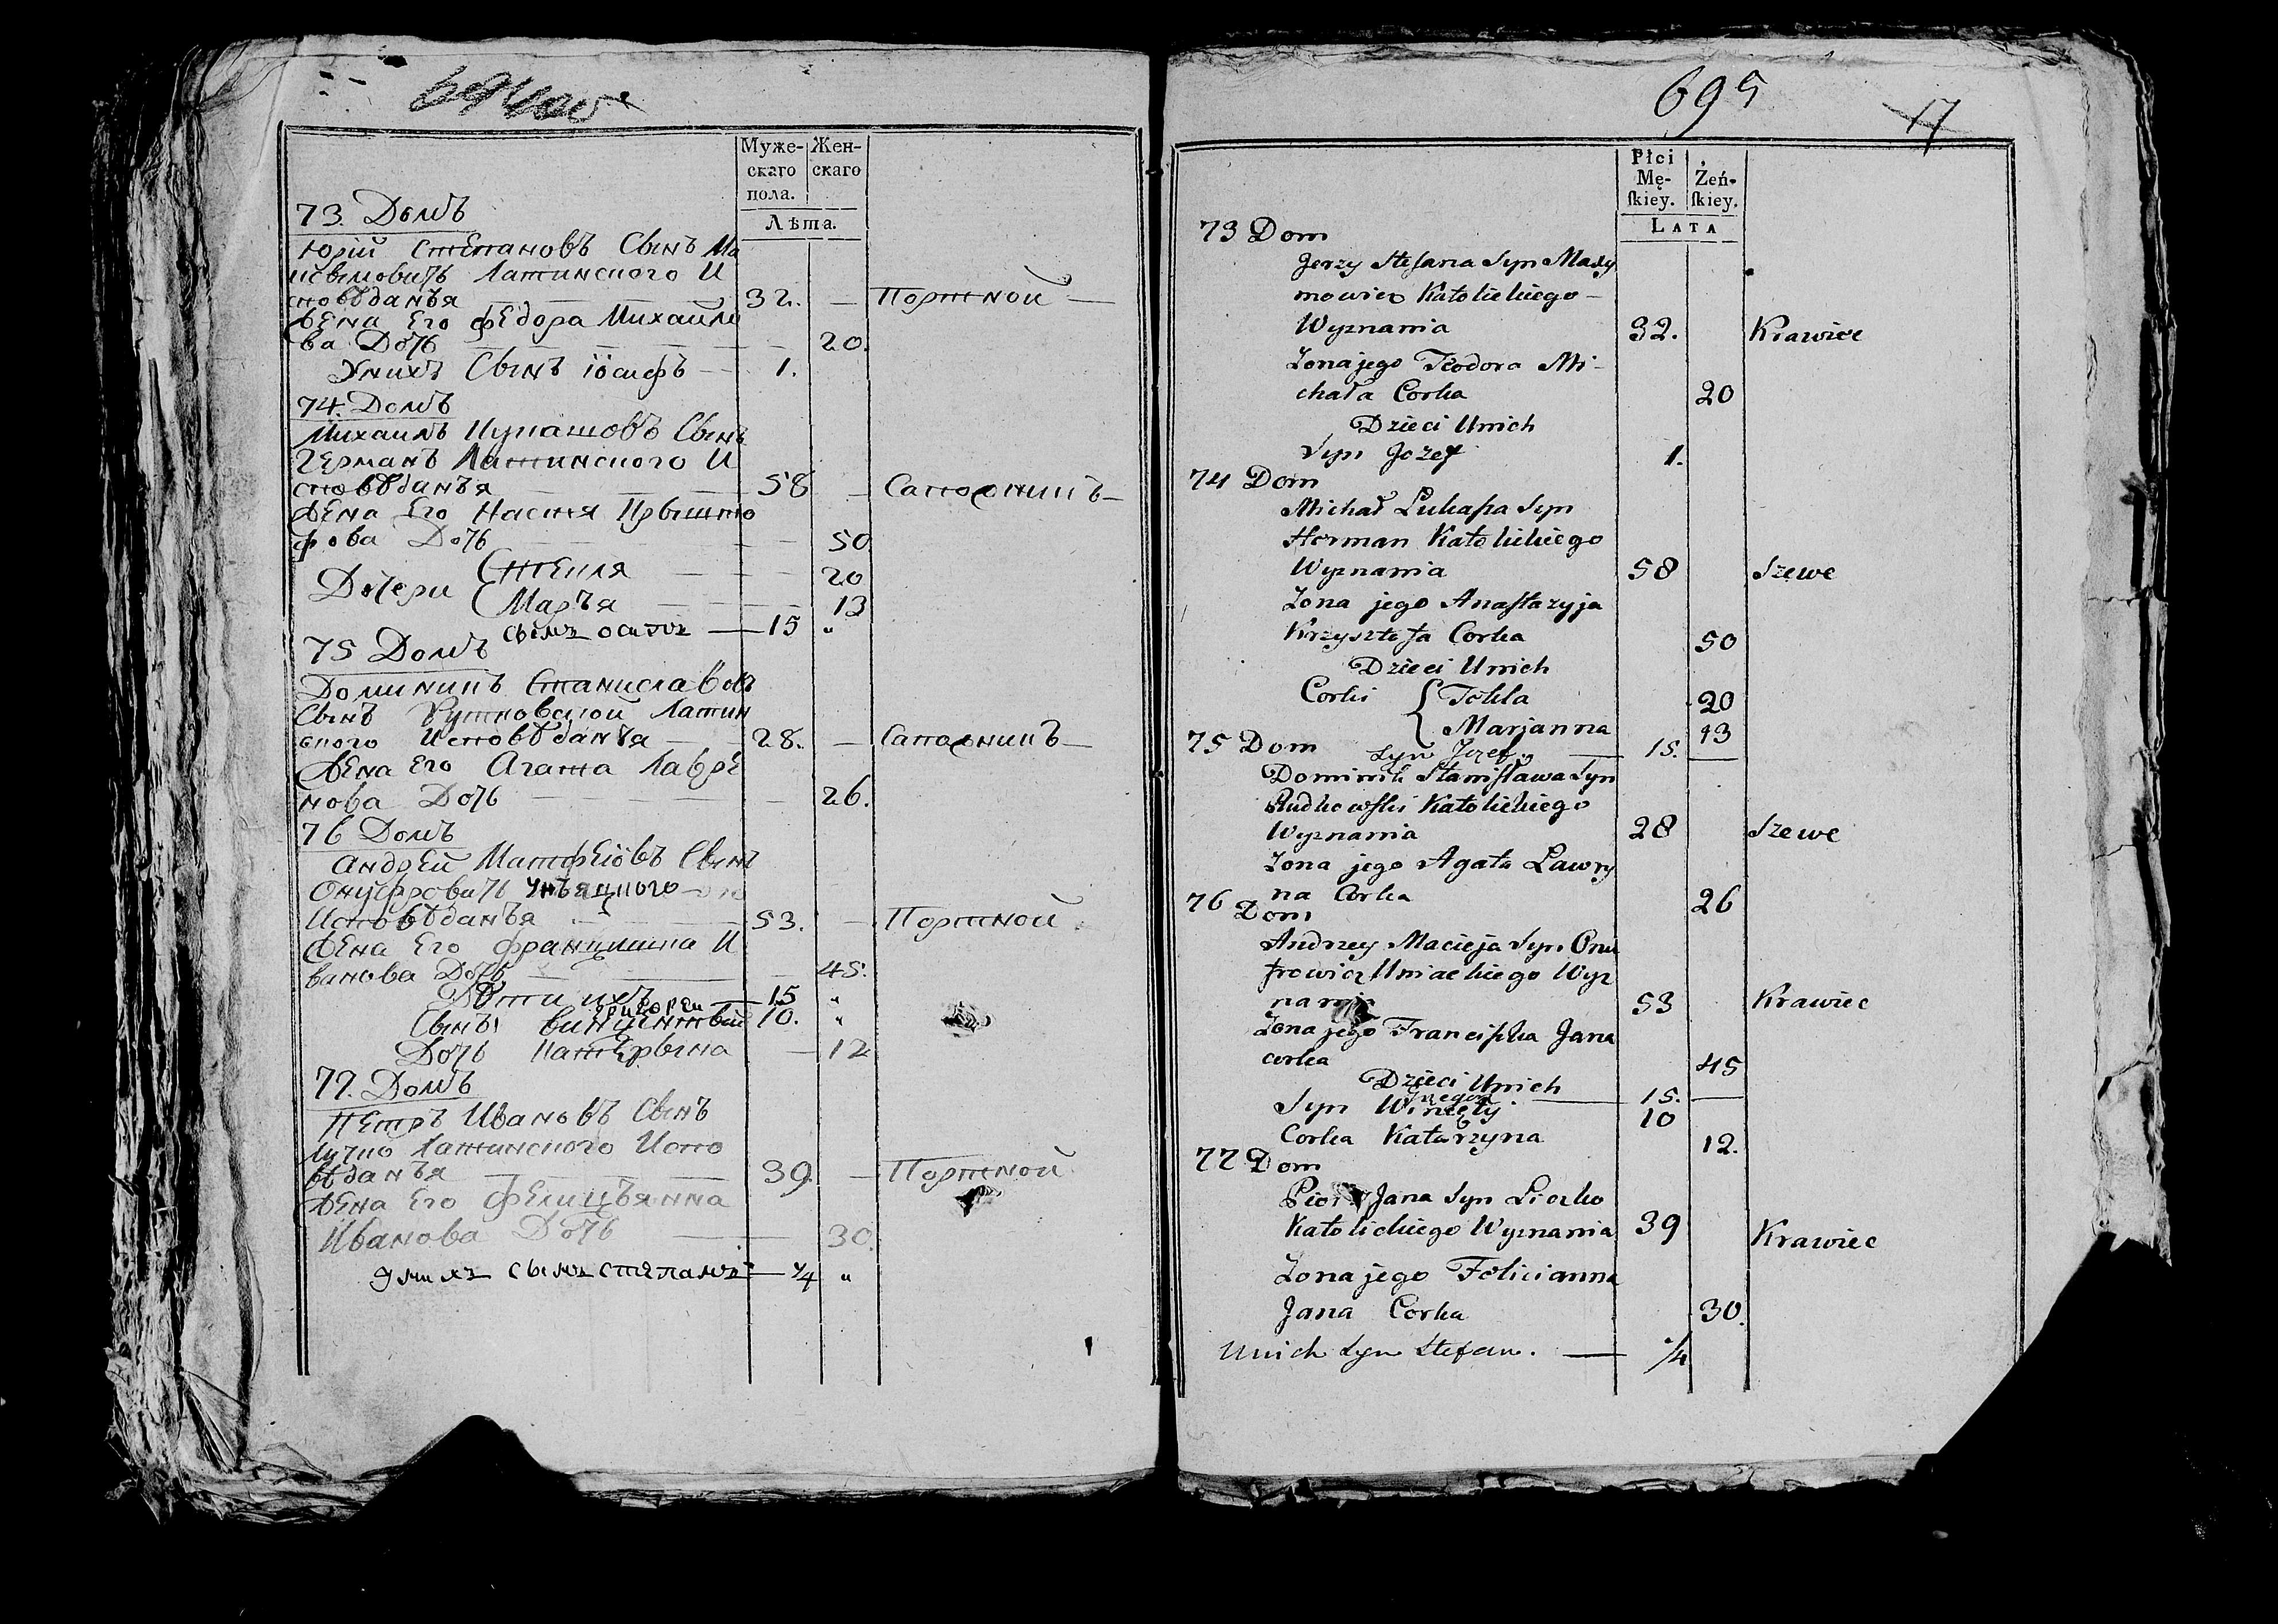 Муже-
скаго
пола.
Жен-
скаго
Лѣта.
73. Домъ
Юрій Степановъ Сынъ Ма
ксымовичь Латинского И
сповѣданья 32. — Портной —
Жена Его Федора Михайло
ва Дочь 20.
Унихъ Сынъ іосифъ — 1.
74. Домъ
Михаилъ Лукашовъ Сынъ
Германъ Латинского И
сповѣданья 58 — Сапожникъ —
Жена Его Настя Крышто
фова Дочь 50
Дочери Стекля 20
Марья 13
сынъ осипъ — 15 "
75 Домъ
Доминикъ Станиславовъ
Сынъ Рутковской Латин
ского Исповѣданья — 28. — Сапожникъ —
Жена Его Агата Лавре
нова Дочь 26.
76 Домъ
Андрей Матфеіовъ Сынъ
Онуфровичь Унѣяцкого
Исповѣданья 53. — Портной
Жена Его Францишка И
ванова Дочь 45.
Дѣти ихъ
Григорги — 15 "
Сынъ винцентый 10. "
Дочь Катерына — 12
77. Домъ
Петръ Ивановъ Сынъ
Личко Латинского Испо
вѣданья 39. — Портной
Жена Его Фелицъянна
Иванова Дочь 30.
Унихъ сынъ степанъ — 1/4 "
695
17
Płci
Mę-
ſkiey.
Żeń-
ſkiey.
LATA
73 Dom
Jerzy Stefana Syn Maxy
mowicz Katolickiego –
Wyznania 32. Krawiec
Zona jego Teodora Mi-
chała Corka 20
Dzieci Unich
Syn Jozef 1.
74 Dom
Michał Lukaſza Syn
Herman Katolickiego
Wyznania 58 Szewc
Zona jego Anaſtazyja
Krzysztofa Corka 50
Dzieci Unich
Corki { Tekla 20
Marjanna 13
Syn Jozef — 15. —
75 Dom
Dominik Staniſława Syn
Rudkowſki Katolickiego
Wyznania 28 Szewc
Zona jego Agata Lawry
na Corka 26
76 Dom
Andrzey Macieja Syn Onu
frowicz Uniackiego Wyz
nania 53 Krawiec
Zona jego Franciſzka Jana
corka 45
Dzieci Unich
Gregor — 15. —
Syn Wincęty 10
Corka Katarzyna 12.
77 Dom
Piotr Jana Syn Liczko
Katolickiego Wyznania 39 Krawiec
Zona jego Felicianna
Jana Corka 30.
Unich Syn Stefan. — 1/4